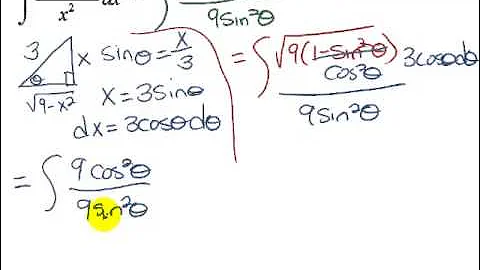 ∫ x² dx
9sin²θ
3 x sinθ = x/3
θ
√9-x²
x = 3sinθ
dx = 3cosθdθ
= ∫ √9(1-sin²θ) 3cosθdθ
cos²θ
9sin²θ
= ∫ 9cos²θ
9sin²θ